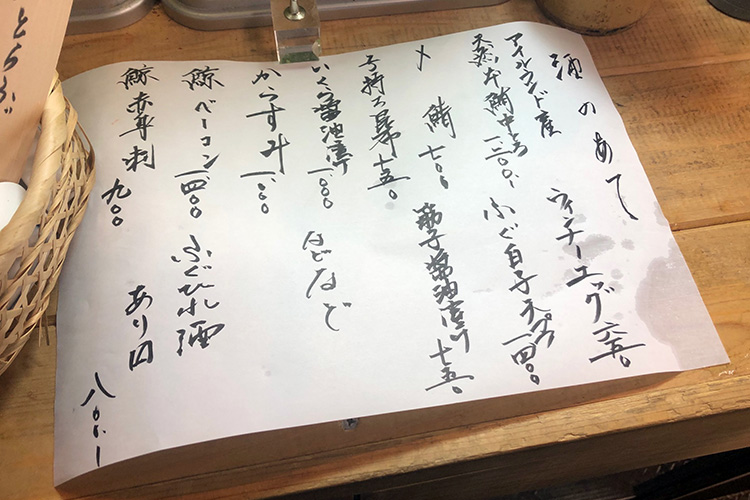 酒のあて
アイルランド産
天然本鮪中とろ 一、三〇〇、ー
〆鯖 七〇〇
子持昆布 七五〇
いくら醤油漬け 一、〇〇〇
からすみ 一、〇〇〇
鯨ベーコン 一、四〇〇
鯨赤身刺 九〇〇
ウィンナーエッグ 六五〇
ふぐ白子天ぷら 一、四〇〇
筋子醤油漬け 七五〇
などなど
ふぐひれ酒
あり〼
八〇〇、ー
とらふぐ